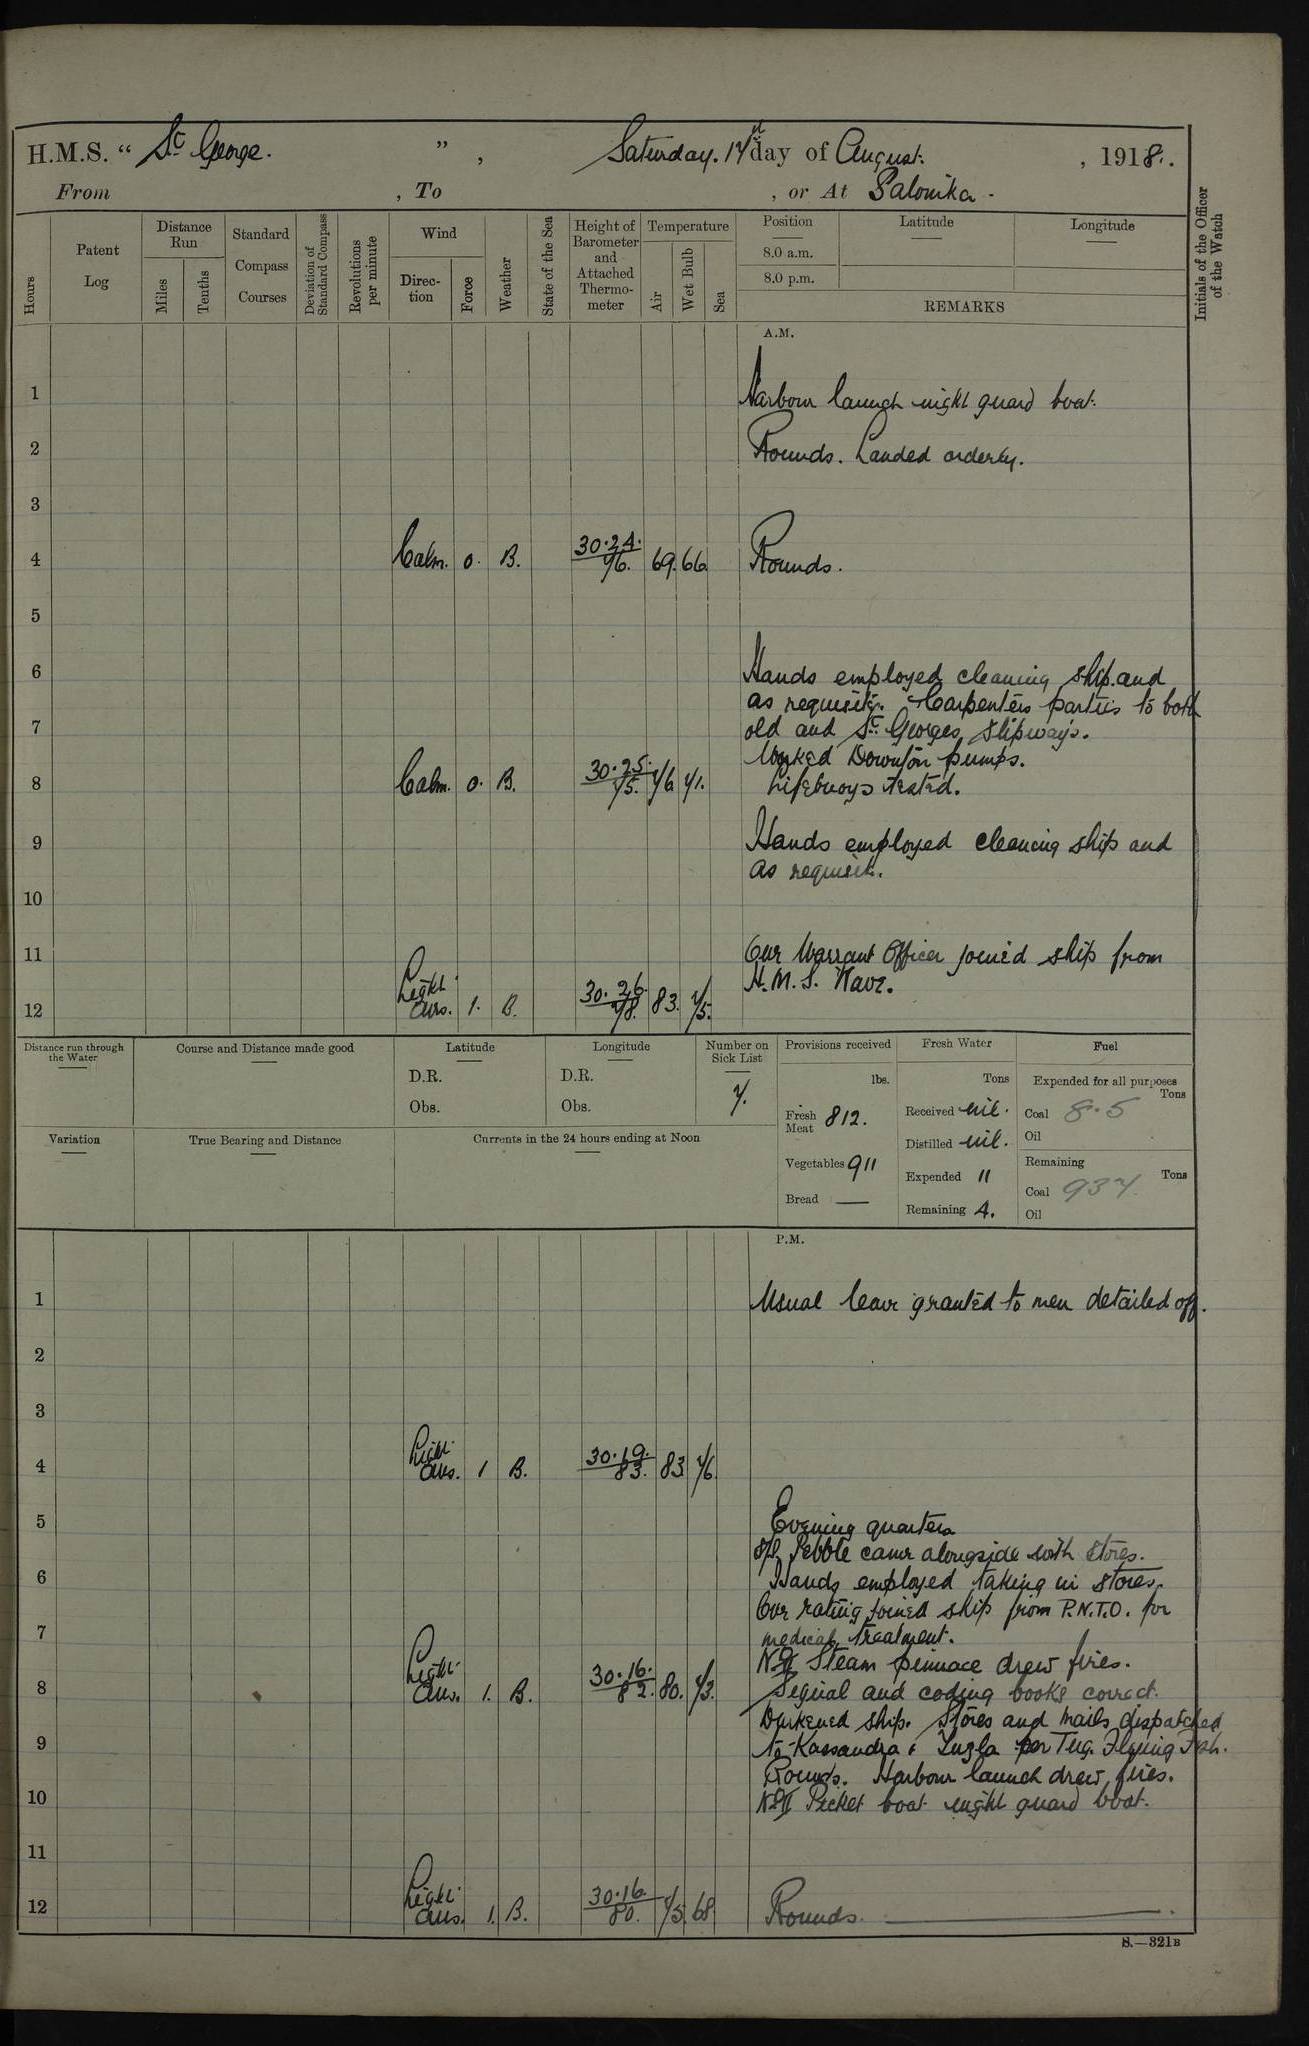 H.M.S. " St. George. " , Saturday. 17th day of August. , 1918.
From , To , or At Salonika -
Hours
Patent Log
Distance Run
Miles
Tenths
Standard Compass Courses
Deviation of Standard Compass
Revolutions per minute
Wind
Direction
Force
Weather
State of the Sea
Height of Barometer and Attached Thermometer
Temperature
Air
Wet Bulb
Sea
Position
8.0 a.m.
8.0 p.m.
Latitude
Longitude
REMARKS
Initials of the Officer of the Watch
A.M.
1 Harbour launch night guard boat.
2 Rounds. Landed orderly.
3
4 Calm. 0. B. 30.24. 76. 69. 66 Rounds.
5
6 Hands employed cleaning ship and
as requisite. Carpenters parties to both
7 old and St. Georges slipways.
Worked Downton pumps.
8 Calm. 0. B. 30.25. 75. 76 71. Lifebuoys tested.
9 Hands employed cleaning ship and
as requisite.
10
11 One Warrant Officer joined ship from
H.M.S. Wave.
12 Light airs. 1. B. 30.26. 78. 83. 75.
Distance run through the Water
Course and Distance made good
Latitude
D.R.
Obs.
Longitude
D.R.
Obs.
Number on Sick List
7.
Provisions received
lbs.
Fresh Meat 812.
Vegetables 911
Bread —
Fresh Water
Tons
Received nil.
Distilled nil.
Expended 11
Remaining 4.
Fuel
Expended for all purposes
Tons
Coal 8.5
Oil
Remaining
Tons
Coal 937
Oil
Variation
True Bearing and Distance
Currents in the 24 hours ending at Noon
P.M.
1 Usual leave granted to men detailed off.
2
3
4 Light airs. 1 B. 30.19. 83. 83 76
5 Evening quarters
S/S Pebble came alongside with stores.
6 Hands employed taking in stores.
One rating joined ship from P.N.T.O. for
7 medical treatment.
No II Steam pinnace drew fires.
8 Light airs. 1. B. 30.16. 82. 80. 73. Signal and coding books correct.
Darkened ship. Stores and mails dispatched
9 to Kassandra & Tuzla per Tug. Flying Fish.
Rounds. Harbour launch drew fires.
10 No II Picket boat night guard boat.
11
12 Light airs. 1. B. 30.16 80. 75 68 Rounds.
S.—321B